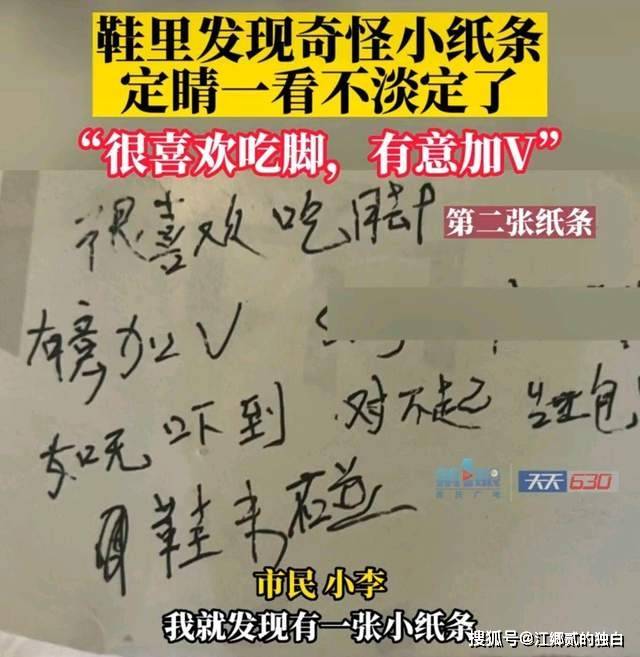 鞋里发现奇怪小纸条
定睛一看不淡定了
“很喜欢吃脚，有意加V”
很喜欢吃脚
第二张纸条
有意加V
如无吓到 对不起 包
鞋未
天天630
市民 小李
我就发现有一张小纸条
搜狐号@江郷贰的独白